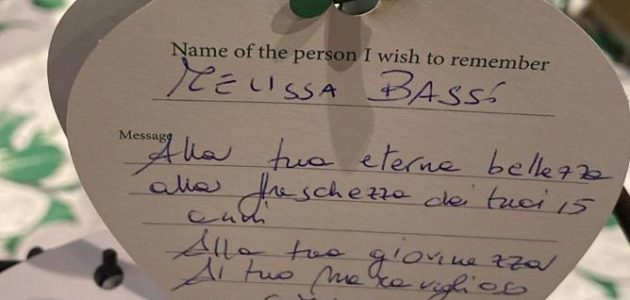 Name of the person I wish to remember
MELISSA BASSi
Message
Alla tua eterna bellezza
alla freschezza dei tuoi 15
anni
Alla tua giovinezza
Al tuo meraviglioso